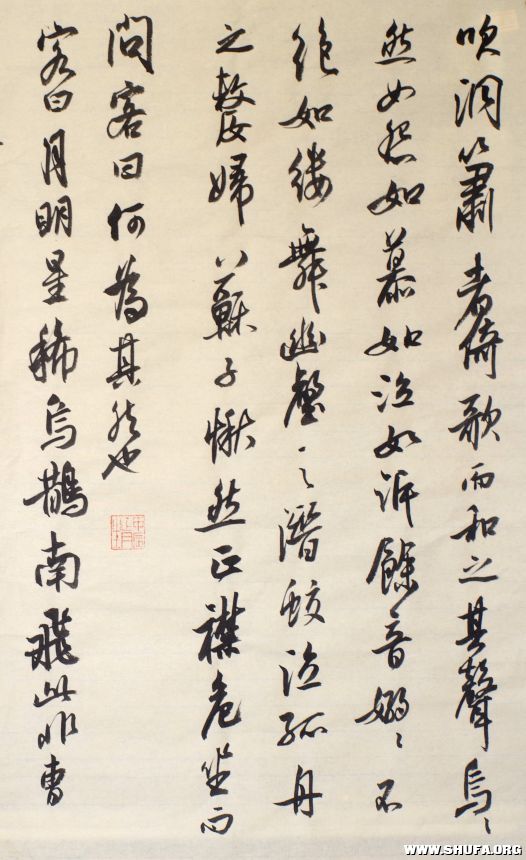 吹洞簫者倚歌而和之其聲烏〻
然如怨如慕如泣如訴餘音嫋〻不
絕如縷舞幽壑之潛蛟泣孤舟
之嫠婦蘇子愀然正襟危坐而
問客曰何為其然也
客曰月明星稀烏鵲南飛此非曹
WWW.SHUFA.ORG